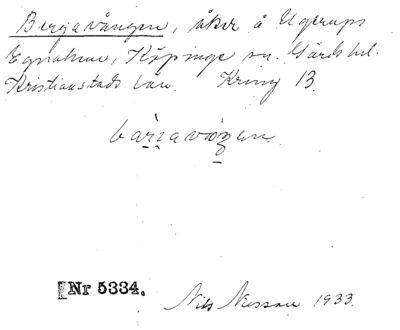 Bergavången, åker å Ugerups
Egnahem, Köpinge sn. Gärds hd.
Kristianstads län. Krons 13.
bärjavåŋen
Nr 5334.
Nils Nilsson 1933.